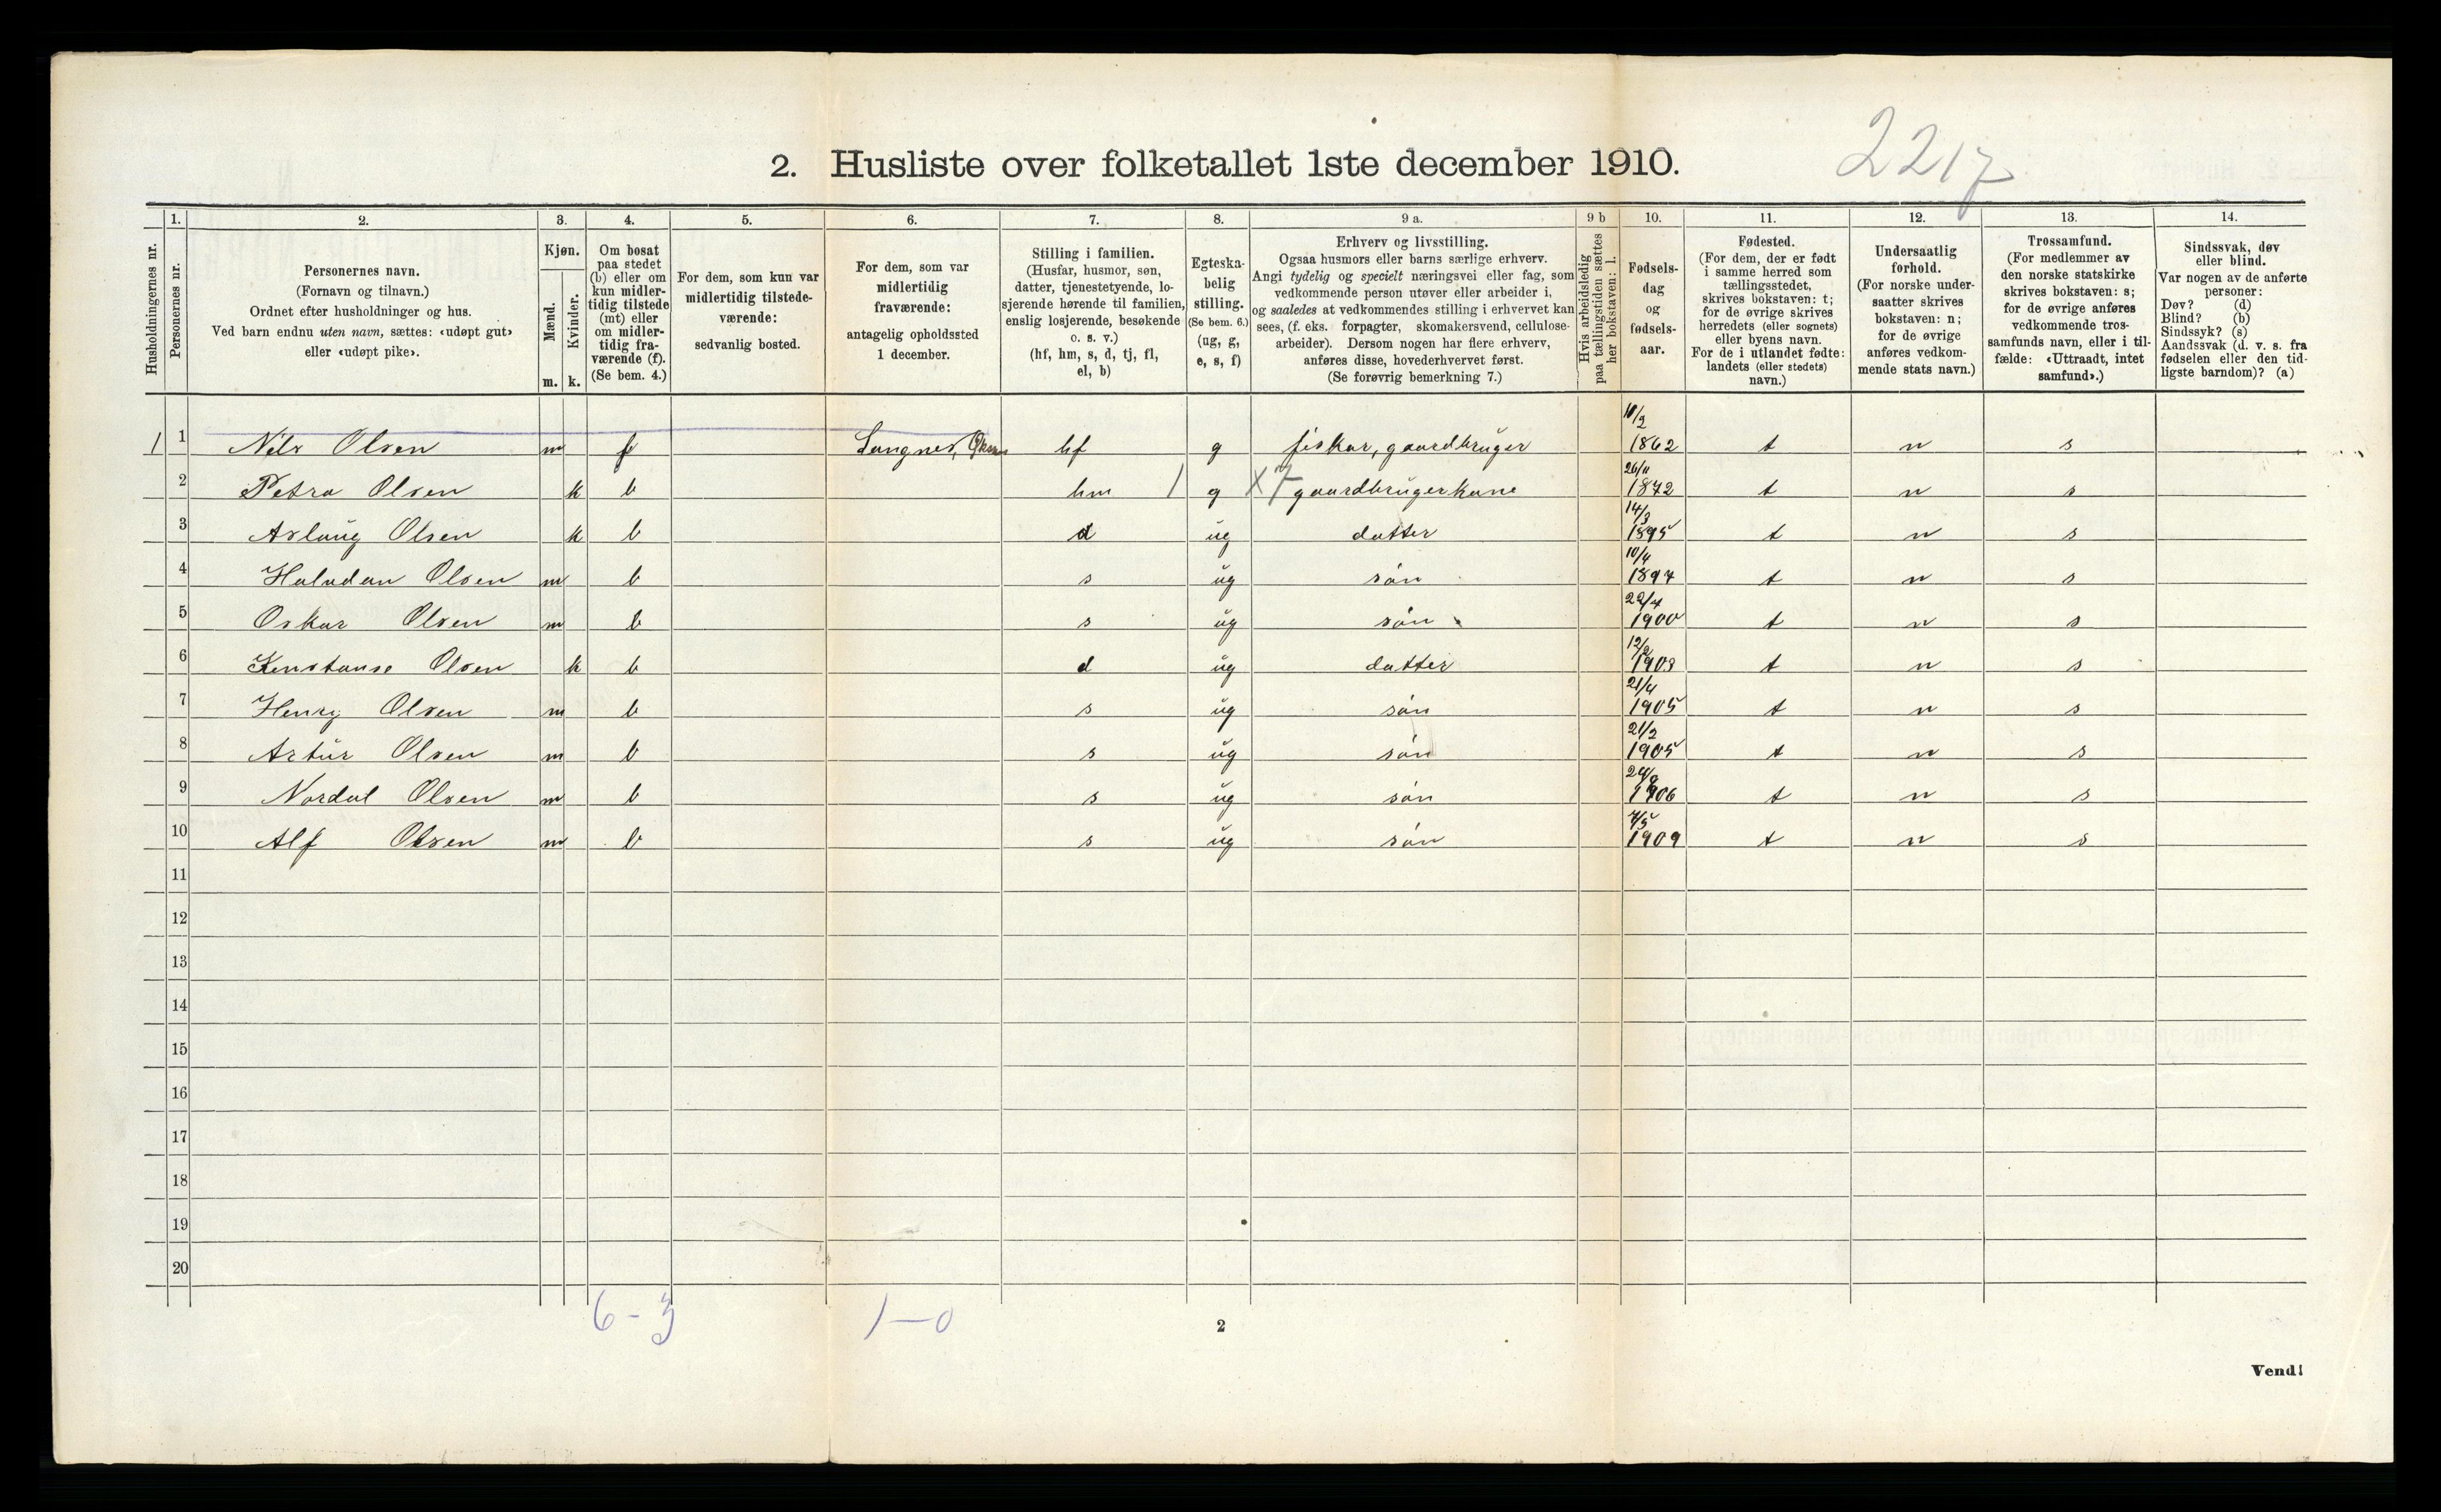 2217
2. Husliste over folketallet 1ste december 1910.
Husholdningernes nr.
1.
Personernes nr.
2.
Personernes navn.
(Fornavn og tilnavn.)
Ordnet efter husholdninger og hus.
Ved barn endnu uten navn, sættes: «udøpt gut»
eller «udøpt pike».
3.
Kjøn.
Mænd.
Kvinder.
m. k.
4.
Om bosat
paa stedet
(b) eller om
kun midler-
tidig tilstede
(mt) eller
om midler-
tidig fra-
værende (f).
(Se bem. 4.)
5.
For dem, som kun var
midlertidig tilstede-
værende:
sedvanlig bosted.
6.
For dem, som var
midlertidig
fraværende:
antagelig opholdssted
1 december.
7.
Stilling i familien.
(Husfar, husmor, søn,
datter, tjenestetyende, lo-
sjerende hørende til familien,
enslig losjerende, besøkende
o. s. v.)
(hf, hm, s, d, tj, fl,
el, b)
8.
Egteska-
belig
stilling.
(Se bem. 6.)
(ug, g,
e, s, f)
9 a.
Erhverv og livsstilling.
Ogsaa husmors eller barns særlige erhverv.
Angi tydelig og specielt næringsvei eller fag, som
vedkommende person utøver eller arbeider i,
og saaledes at vedkommendes stilling i erhvervet kan
sees, (f. eks. forpagter, skomakersvend, cellulose-
arbeider). Dersom nogen har flere erhverv,
anføres disse, hovederhvervet først.
(Se forøvrig bemerkning 7.)
9 b
Hvis arbeidsledig
paa tællingstiden sættes
her bokstaven: l.
10.
Fødsels-
dag
og
fødsels-
aar.
11.
Fødested.
(For dem, der er født
i samme herred som
tællingsstedet,
skrives bokstaven: t;
for de øvrige skrives
herredets (eller sognets)
eller byens navn.
For de i utlandet fødte:
landets (eller stedets)
navn.)
12.
Undersaatlig
forhold.
(For norske under-
saatter skrives
bokstaven: n;
for de øvrige
anføres vedkom-
mende stats navn.)
13.
Trossamfund.
(For medlemmer av
den norske statskirke
skrives bokstaven: s;
for de øvrige anføres
vedkommende tros-
samfunds navn, eller i til-
fælde: «Uttraadt, intet
samfund».)
14.
Sindssvak, døv
eller blind.
Var nogen av de anførte
personer:
Døv? (d)
Blind? (b)
Sindssyk? (s)
Aandssvak (d. v. s. fra
fødselen eller den tid-
ligste barndom)? (a)
1 1 Nils Olsen m f Langnes, hf g fisker, gaardbruger 1862 t n s
2 Petra Olsen k b hm 1 g X7 gaardbrugerkone 26/11 1872 t n s
3 Aslaug Olsen k b d ug datter 14/3 1895 t n s
4 Halvdan Olsen m b s ug sön 10/4 1897 t n s
5 Oskar Olsen m b s ug sön 22/4 1900 t n s
6 Konstanse Olsen k b d ug datter 1903 t n s
7 Henry Olsen m b s ug sön 21/4 1905 t n s
8 Artur Olsen m b s ug sön 21/2 1905 t n s
9 Nordal Olsen m b s ug sön 1906 t n s
10 Alf Olsen m b s ug sön 1909 t n s
11
12
13
14
15
16
17
18
19
20
6-3 1-0
2
Vend!